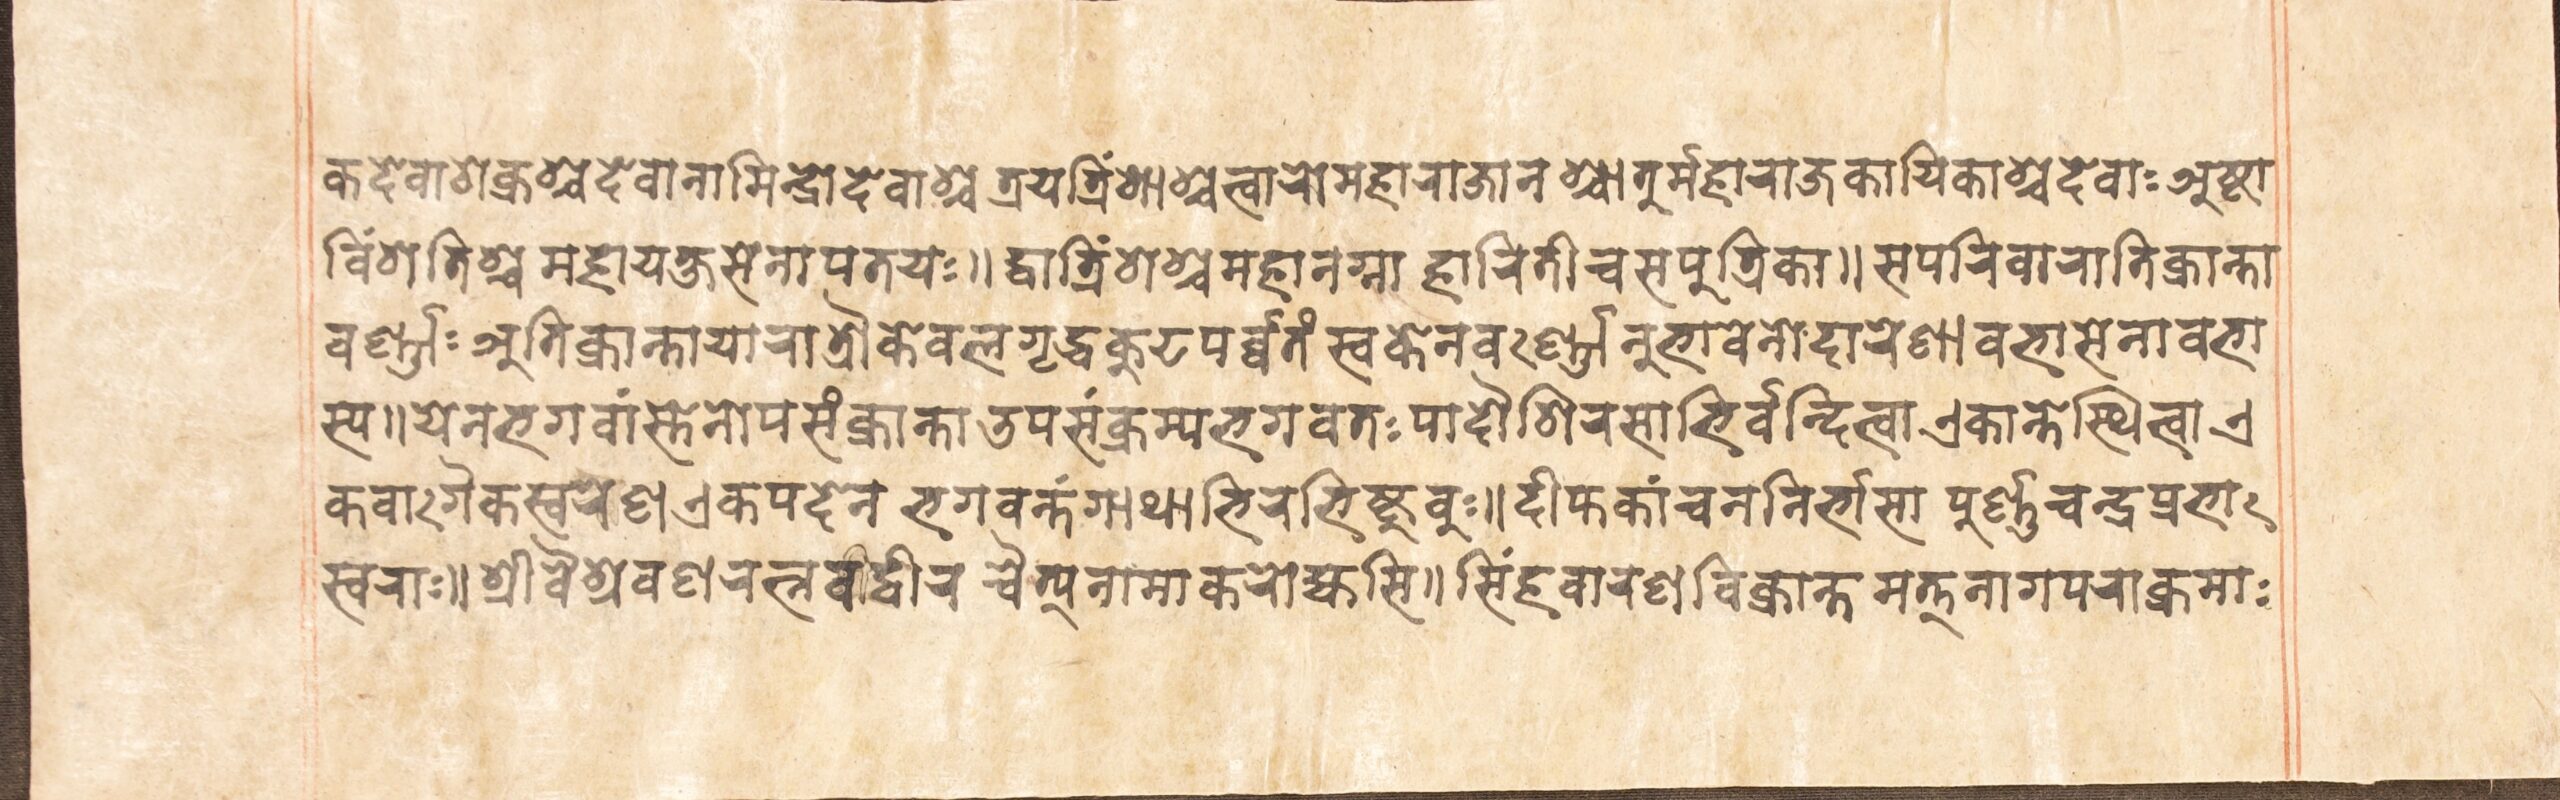 कदेवाशक्रश्चदेवानामिन्द्रोदेवाश्च त्रयत्रिंशाश्चत्वारोमहाराजानश्चातुर्महाराजकायिकाश्चदेवाः अष्टा
विंशतिश्च महायक्षसेनापतयः॥ द्वात्रिंशश्चमहानग्ना हारितीचसपुत्रिका॥ सपरिवारातिक्रान्ता
वर्ण्णाः अतिक्रान्तायारात्रौकेवलगृद्धकुटपर्व्वतं स्वकेनवर्ण्णानुभावेनोदारेणावभासेनावभा
स्य॥ येनभगवांस्तेनोपसंक्रान्ता उपसंक्रम्यभगवतः पादौशिरसाभिर्वन्दित्वा एकान्तेस्थित्वा ए
कवागैकस्वरेण एकपदेन भगवन्तंगाथाभिरभिष्टुवुः॥ दीप्तकांचननिर्भासा पुर्ण्णचन्द्रप्रभा
स्वराः॥ श्रीवैश्रवणरत्न चैत्यनामाकरोह्यसि॥ सिंहवारणविक्रान्त मत्तनागपराक्रमाः